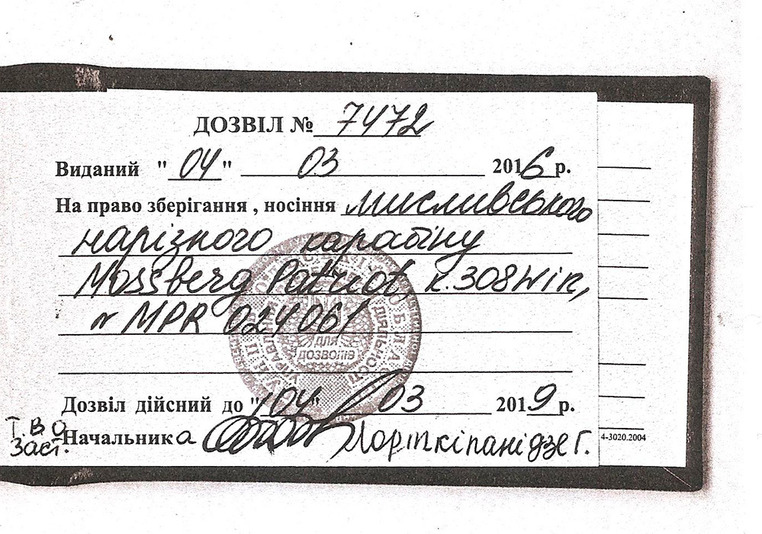 ДОЗВІЛ № 7472
Виданий "04" 03 2016 р.
На право зберігання , носіння мисливського
нарізного карабіну
Mossberg Patriot, к.308win,
n MPR 024061
ДЛЯ
ДОЗВОЛІВ
Дозвіл дійсний до "04" 03 2019 р.
Т.В.О.
Заст. Начальника Лорткіпанідзе Г.
4-3020.2004